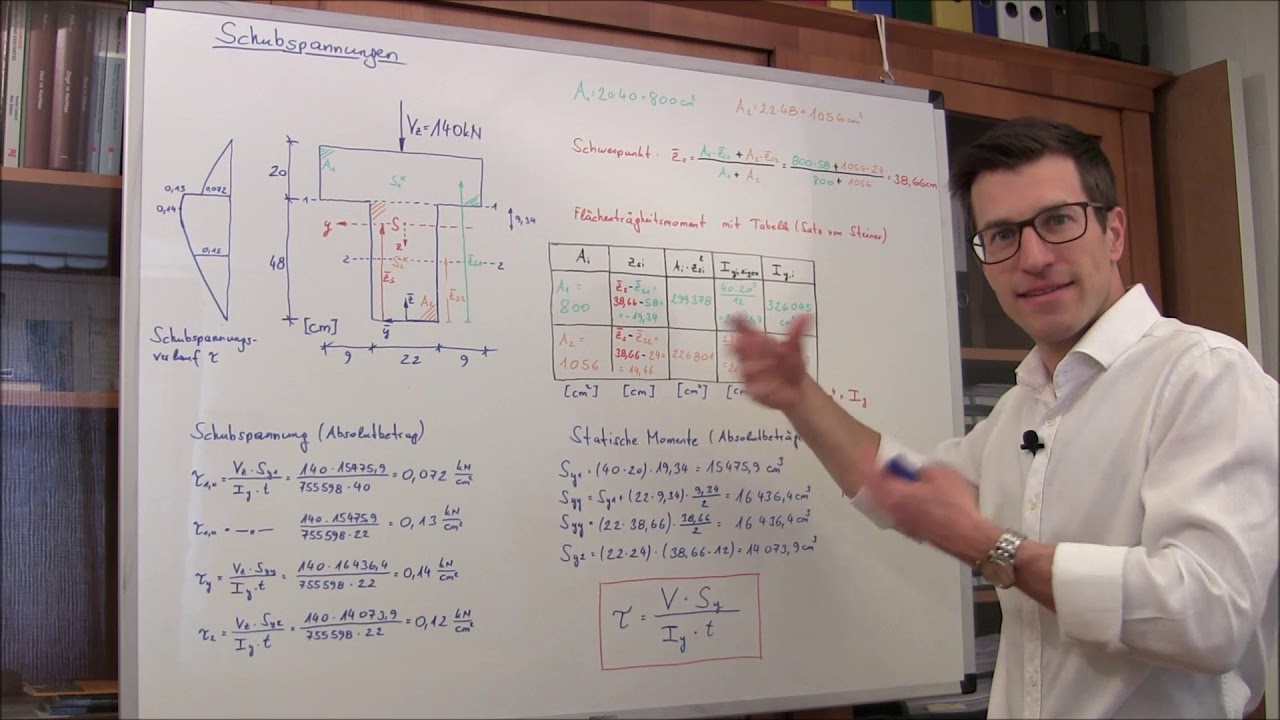 Schubspannungen
A₁=20·40=800cm²
A₂=22·48=1056cm²
V_z=140kN
20
48
A₁
S₁
1
1
9,34
y
S
z
2
S₂
2
z̄_s
z̄_s1
z̄_s2
A₂
z̄
ȳ
[cm]
9
22
9
0,13
0,072
0,14
0,12
Schubspannungs-
verlauf τ
Schwerpunkt: z̄_s = (A₁·z̄_s1 + A₂·z̄_s2)/(A₁ + A₂) = (800·58 + 1056·24)/(800 + 1056) = 38,66cm
Flächenträgheitsmoment mit Tabelle (Satz von Steiner)
A_i | z_si | A_i·z_si² | I_yi,eigen | I_y,i
A₁ = 800 | z̄_s - z̄_s1 = 38,66-58= =-19,34 | 299378 | 40·20³/12 | 326045
A₂ = 1056 | z̄_s - z̄_s2 = 38,66-24= = 14,66 | 226801
[cm²] [cm] [cm⁴]
I_y
Schubspannung (Absolutbetrag)
τ₁,₀ = V_z·S_y1/(I_y·t) = 140·15475,9/(755598·40) = 0,072 kN/cm²
τ₁,ᵤ = —〃— 140·15475,9/(755598·22) = 0,13 kN/cm²
τ_y = V_z·S_yy/(I_y·t) = 140·16436,4/(755598·22) = 0,14 kN/cm²
τ₂ = V_z·S_y2/(I_y·t) = 140·14073,9/(755598·22) = 0,12 kN/cm²
Statische Momente (Absolutbeträge
S_y1 = (40·20)·19,34 = 15475,9 cm³
S_yy = S_y1 + (22·9,34)·9,34/2 = 16436,4 cm³
S_yy = (22·38,66)·38,66/2 = 16436,4 cm³
S_y2 = (22·24)·(38,66-12) = 14073,9 cm³
τ = V·S_y/(I_y·t)